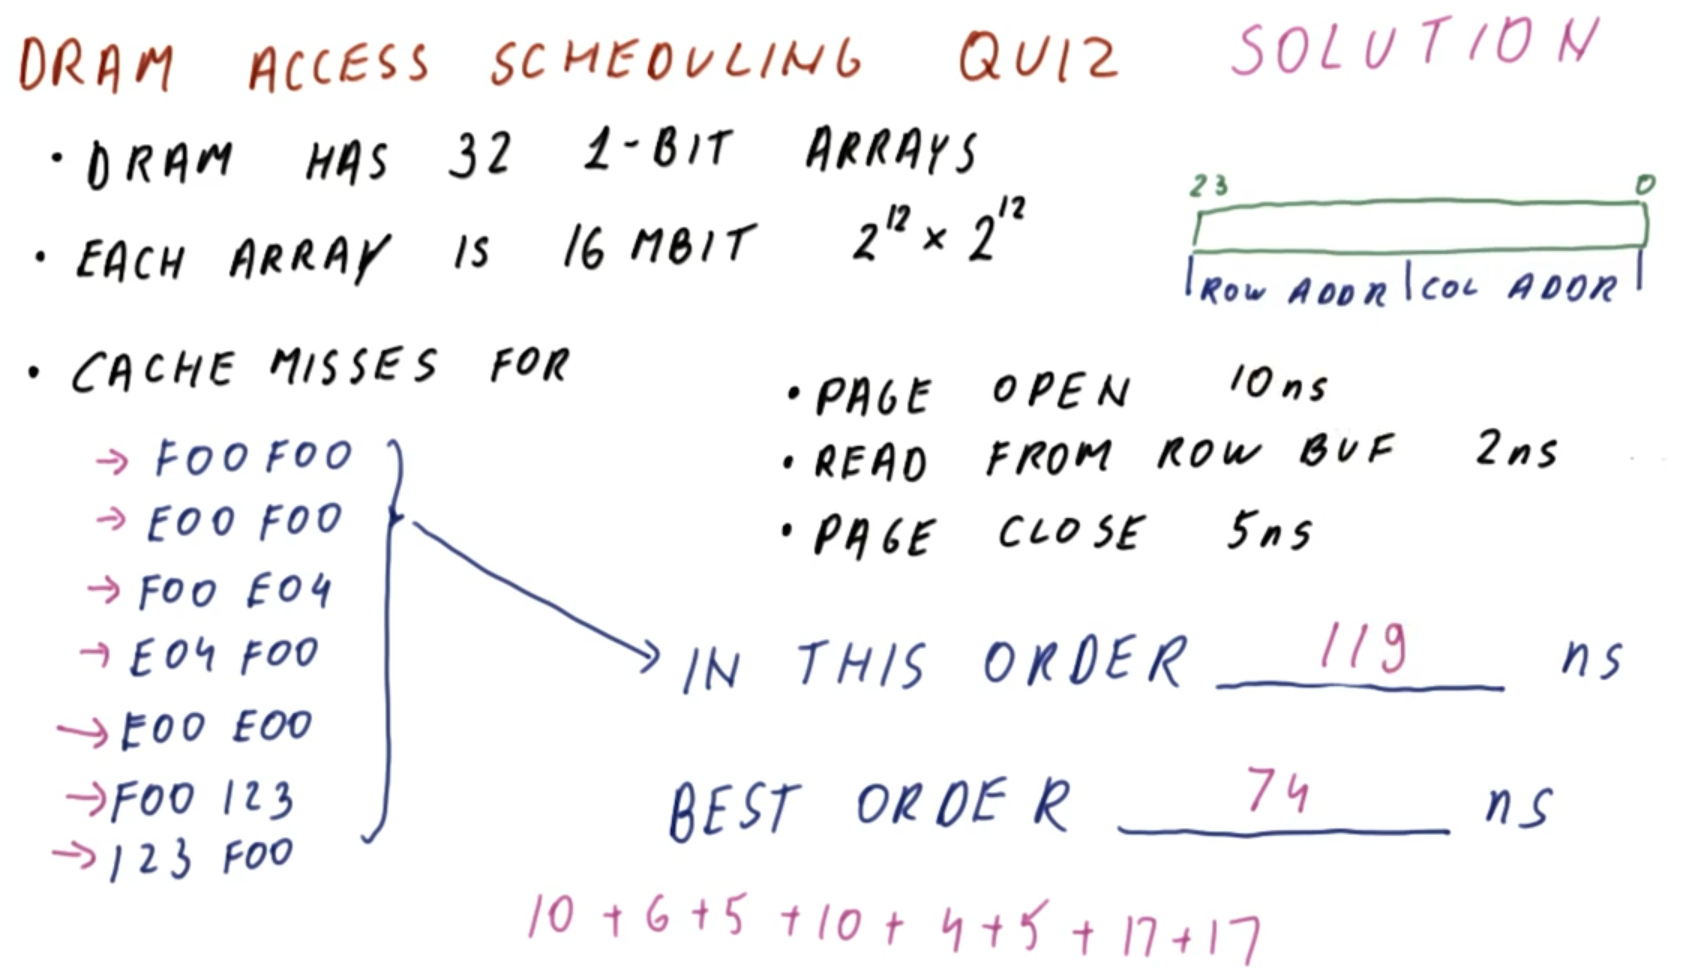 DRAM ACCESS SCHEDULING QUIZ SOLUTION
• DRAM HAS 32 1-BIT ARRAYS
• EACH ARRAY IS 16 MBIT 2^12 × 2^12
23 0
ROW ADDR | COL ADDR
• CACHE MISSES FOR
→ F00 F00
→ E00 F00
→ F00 E04
→ E04 F00
→ E00 E00
→ F00 123
→ 123 F00
• PAGE OPEN 10ns
• READ FROM ROW BUF 2ns
• PAGE CLOSE 5ns
IN THIS ORDER 119 ns
BEST ORDER 74 ns
10 + 6 + 5 + 10 + 4 + 5 + 17 + 17